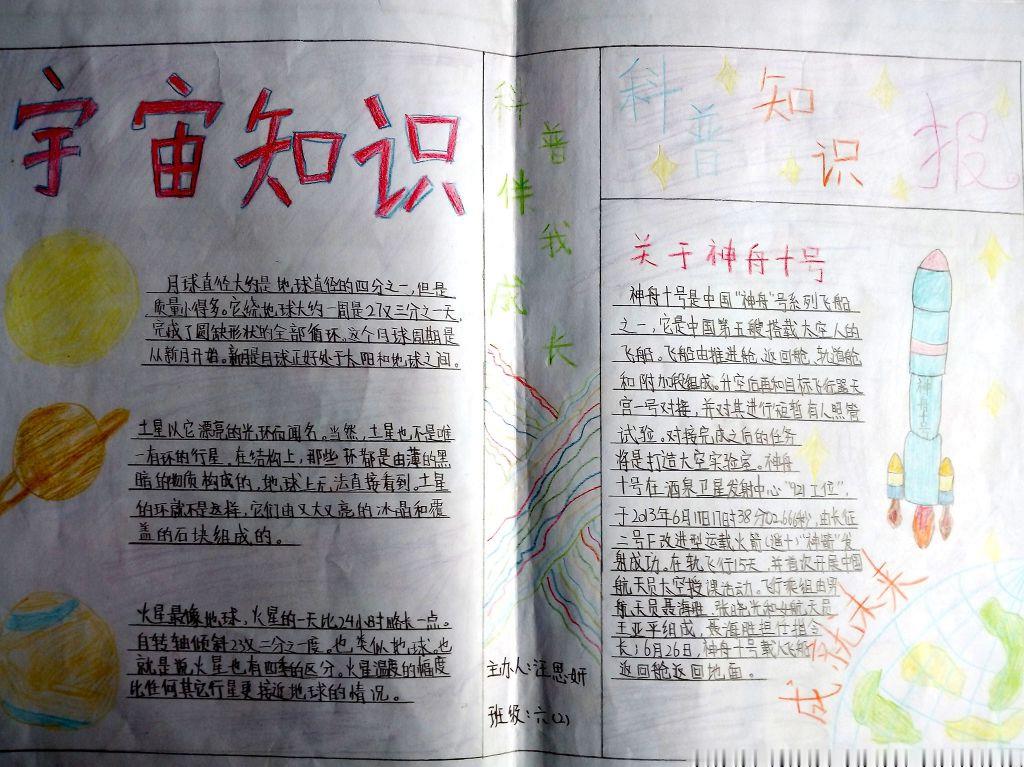 宇宙知识
月球直径大约是地球直径的四分之一,但是
质量小得多。它绕地球大约一周是27又三分之一天,
完成了圆缺形状的全部循环。这个月球周期是
从新月开始。新月是月球正好处于太阳和地球之间。
土星以它漂亮的光环而闻名。当然,土星也不是唯
一有环的行星。在结构上,那些环都是由薄的黑
暗的物质构成的,地球上无法直接看到。土星
的环就不是这样,它们由又大又亮的冰晶和覆
盖的石块组成的。
火星最像地球,火星的一天比24小时略长一点。
自转轴倾斜23又二分之一度。也类似地球。也
就是说火星也有四季的区分。火星温度的幅度
比任何其它行星更接近地球的情况。
科普伴我成长
主办人:汪思妍
班级:六(2)
科普知识报
关于神舟十号
神舟十号是中国“神舟”号系列飞船
之一,它是中国第五艘搭载太空人的
飞船。飞船由推进舱、返回舱、轨道舱
和附加段组成。升空后再和目标飞行器天
宫一号对接,并对其进行短暂有人照管
试验。对接完成之后的任务
将是打造太空实验室。神舟
十号在酒泉卫星发射中心“921工位”,
于2013年6月11日17时38分02.666秒,由长征
二号F改进型运载火箭(遥十)“神箭”发
射成功。在轨飞行15天,并首次开展中国
航天员太空授课活动。飞行乘组由男
航天员聂海胜、张晓光和女航天员
王亚平组成,聂海胜担任指令
长;6月26日,神舟十号载人飞船
返回舱返回地面。
神舟